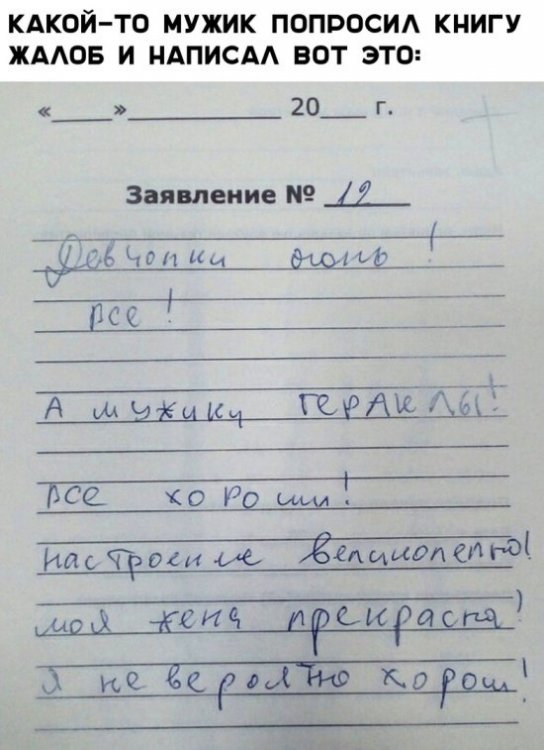 КАКОЙ-ТО МУЖИК ПОПРОСИЛ КНИГУ
ЖАЛОБ И НАПИСАЛ ВОТ ЭТО:
«____»____________ 20___ г.
Заявление № 12
Девчонки огонь!
все!
А мужики ГЕРАКЛЫ!
все хороши!
настроение великолепно!
моя жена прекрасна!
Я не вероятно хорош!